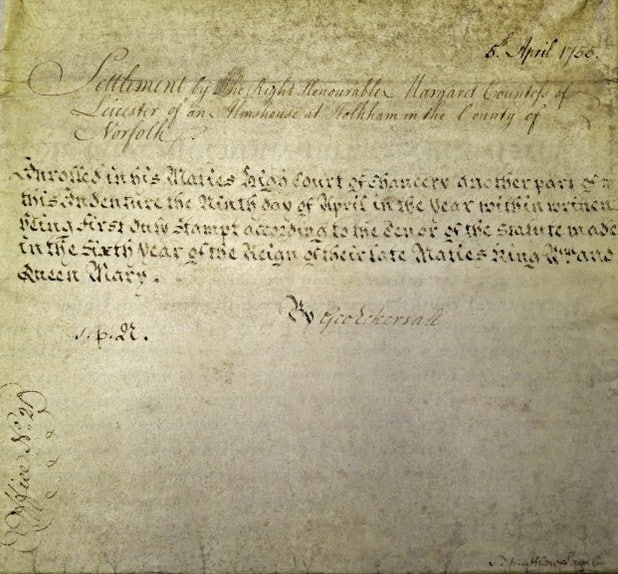 5th April 1755.
Settlement by The Right Honourable Margaret Countess of
Leicester of an Almshouse at Holkham in the County of
Norfolk
Enrolled in his Maties High Court of Chancery another part of
this Indenture the Ninth day of April in the Year within written
being first duly Stampt according to the Tenor of the Statute made
in the Sixth Year of the Reign of their late Maties King Wm and
Queen Mary.
By Geo Eckersall
Office No.